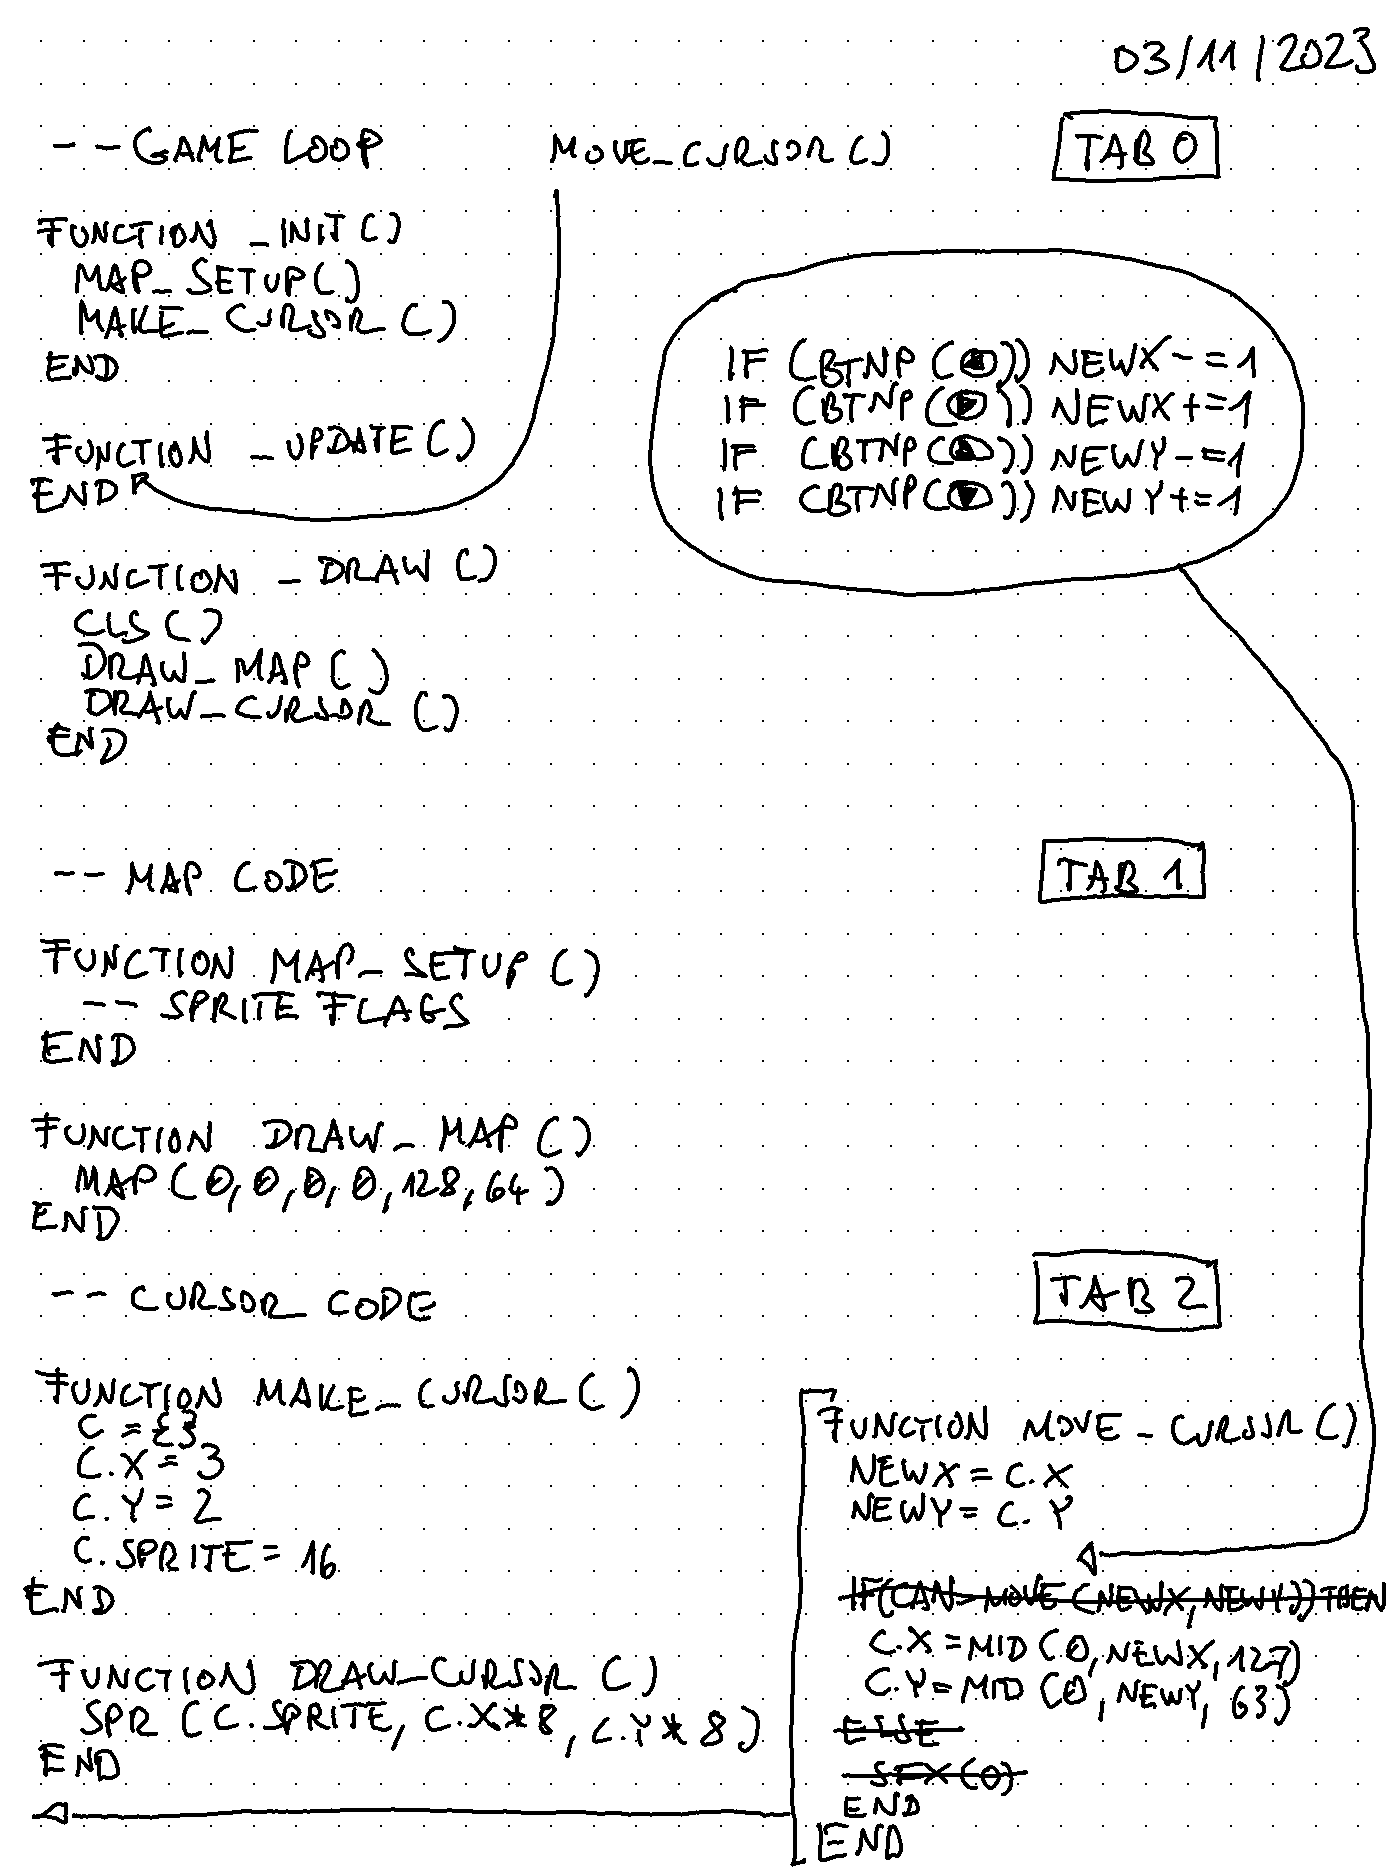 03/11/2023
-- GAME LOOP
MOVE_CURSOR()
TAB 0
FUNCTION _INIT()
MAP_SETUP()
MAKE_CURSOR()
END
FUNCTION _UPDATE()
END
IF (BTNP(⬅️)) NEWX-=1
IF (BTNP(➡️)) NEWX+=1
IF (BTNP(⬆️)) NEWY-=1
IF (BTNP(⬇️)) NEWY+=1
FUNCTION _DRAW()
CLS()
DRAW_MAP()
DRAW_CURSOR()
END
-- MAP CODE
TAB 1
FUNCTION MAP_SETUP()
-- SPRITE FLAGS
END
FUNCTION DRAW_MAP()
MAP(0,0,0,0,128,64)
END
-- CURSOR CODE
TAB 2
FUNCTION MAKE_CURSOR()
C={}
C.X=3
C.Y=2
C.SPRITE=16
END
FUNCTION DRAW_CURSOR()
SPR(C.SPRITE, C.X*8, C.Y*8)
END
FUNCTION MOVE_CURSOR()
NEWX=C.X
NEWY=C.Y
IF(CAN_MOVE(NEWX,NEWY)) THEN
C.X=MID(0,NEWX,127)
C.Y=MID(0,NEWY,63)
ELSE
SFX(0)
END
END